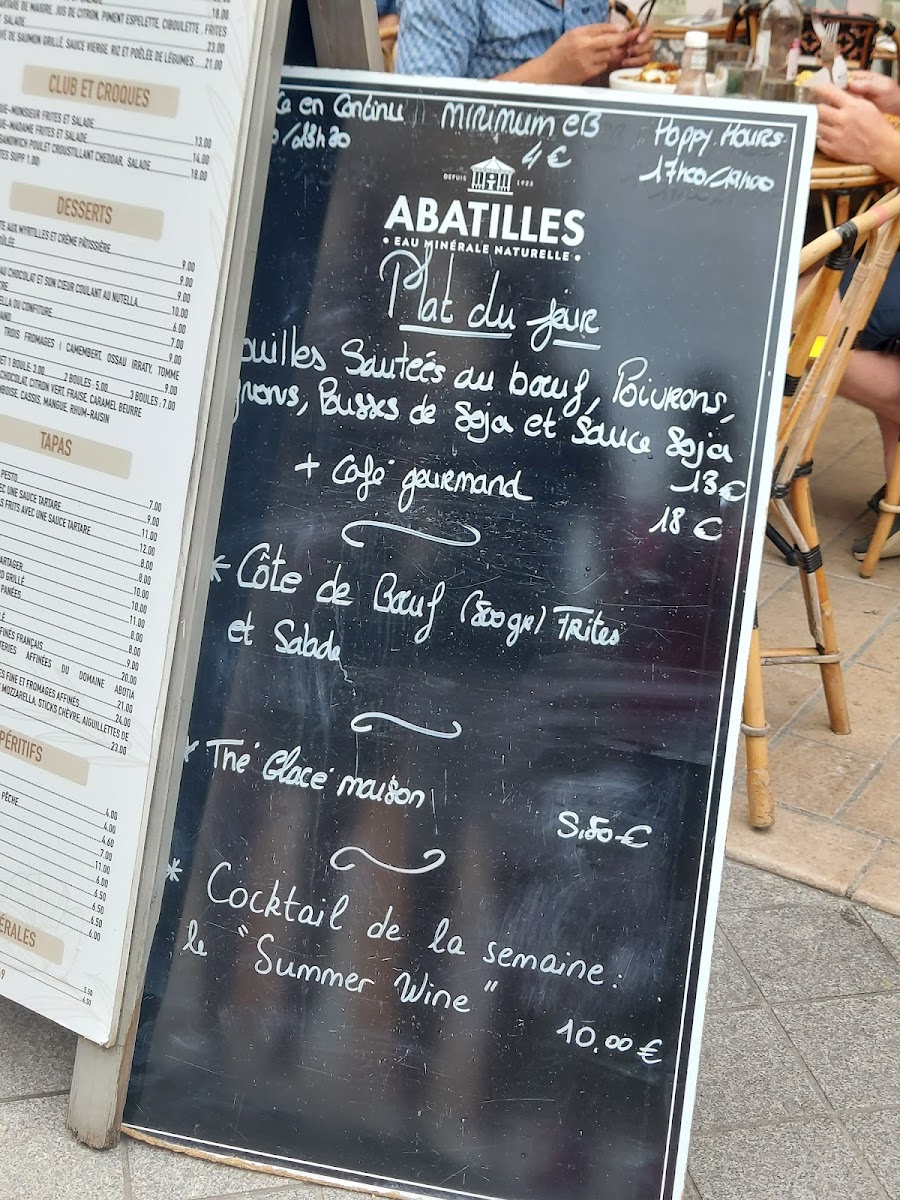 18.00
TARTARE DE MAIGRE, JUS DE CITRON, PIMENT ESPELETTE, CIBOULETTE, FRITES
SALADE
23.00
DE SAUMON GRILLÉ, SAUCE VIERGE, RIZ ET POÊLÉE DE LÉGUMES.....21.00
CLUB ET CROQUES
MONSIEUR FRITES ET SALADE
13.00
MADAME FRITES ET SALADE
14.00
SANDWICH POULET CROUSTILLANT CHEDDAR, SALADE
18.00
SUPP 1.00)
DESSERTS
AUX MYRTILLES ET CRÈME PÂTISSIÈRE
9.00
9.00
AU CHOCOLAT ET SON CŒUR COULANT AU NUTELLA,
9.00
10.00
OU CONFITURE
6.00
7.00
TROIS FROMAGES ( CAMEMBERT, OSSAU IRRATY, TOMME
9.00
1 BOULE, 3.00 2 BOULES : 5.00 3 BOULES : 7.00
CHOCOLAT CITRON VERT, FRAISE, CARAMEL BEURRE
CASSIS, MANGUE, RHUM-RAISIN
TAPAS
PESTO
7.00
UNE SAUCE TARTARE
9.00
FRITS AVEC UNE SAUCE TARTARE
11.00
12.00
8.00
PARTAGER
8.00
GRILLÉ
10.00
PANÉES
10.00
11.00
8.00
FRANÇAIS
9.00
20.00
AFFINÉES DU DOMAINE ABOTIA
21.00
FINE ET FROMAGES AFFINÉS
24.00
MOZZARELLA, STICKS CHÈVRE, AIGUILLETTES DE
23.00
PÊCHE
4.00
4.00
4.60
7.00
11.00
6.00
6.50
6.50
6.00
5.50
6.50
en Continu
/18h30
MINIMUM CB
4 €
Happy Hours
17h00/19h00
DEPUIS 1925
ABATILLES
• EAU MINÉRALE NATURELLE •
Plat du jour
ouilles Sauteés au bœuf, Poivrons,
gnons, Pousses de Soja et Sauce Soja
13€
+ Café gourmand
18 €
* Côte de Bœuf (800gr) Frites
et Salade
* Thé Glacé maison
5,50 €
* Cocktail de la semaine :
le "Summer Wine"
10.00 €